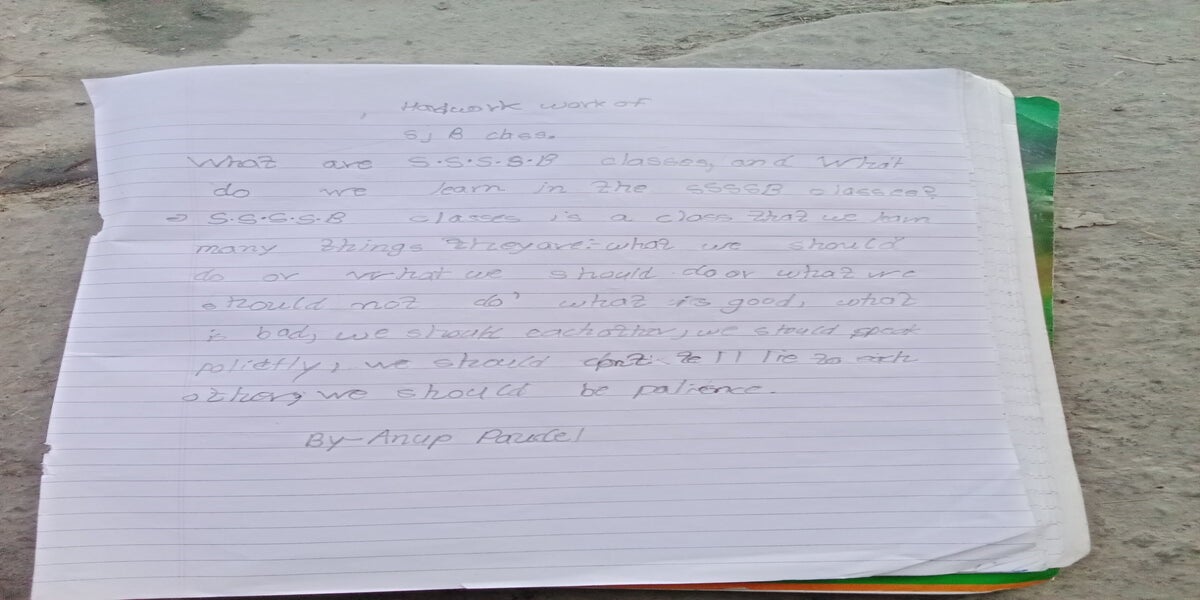 Hodwork work of
S, B class.
What are S.S.S.S.B classes, and What
do we learn in the SSSSB classes?
→ S.S.S.S.B classes is a class that we learn
many things they are:- what we should
do or What we should do or what we
should not do' what is good, what
is bad, we should each other, we should speak
polietly, we should dont tell lie to each
other, we should be patience.
By- Anup Paudel